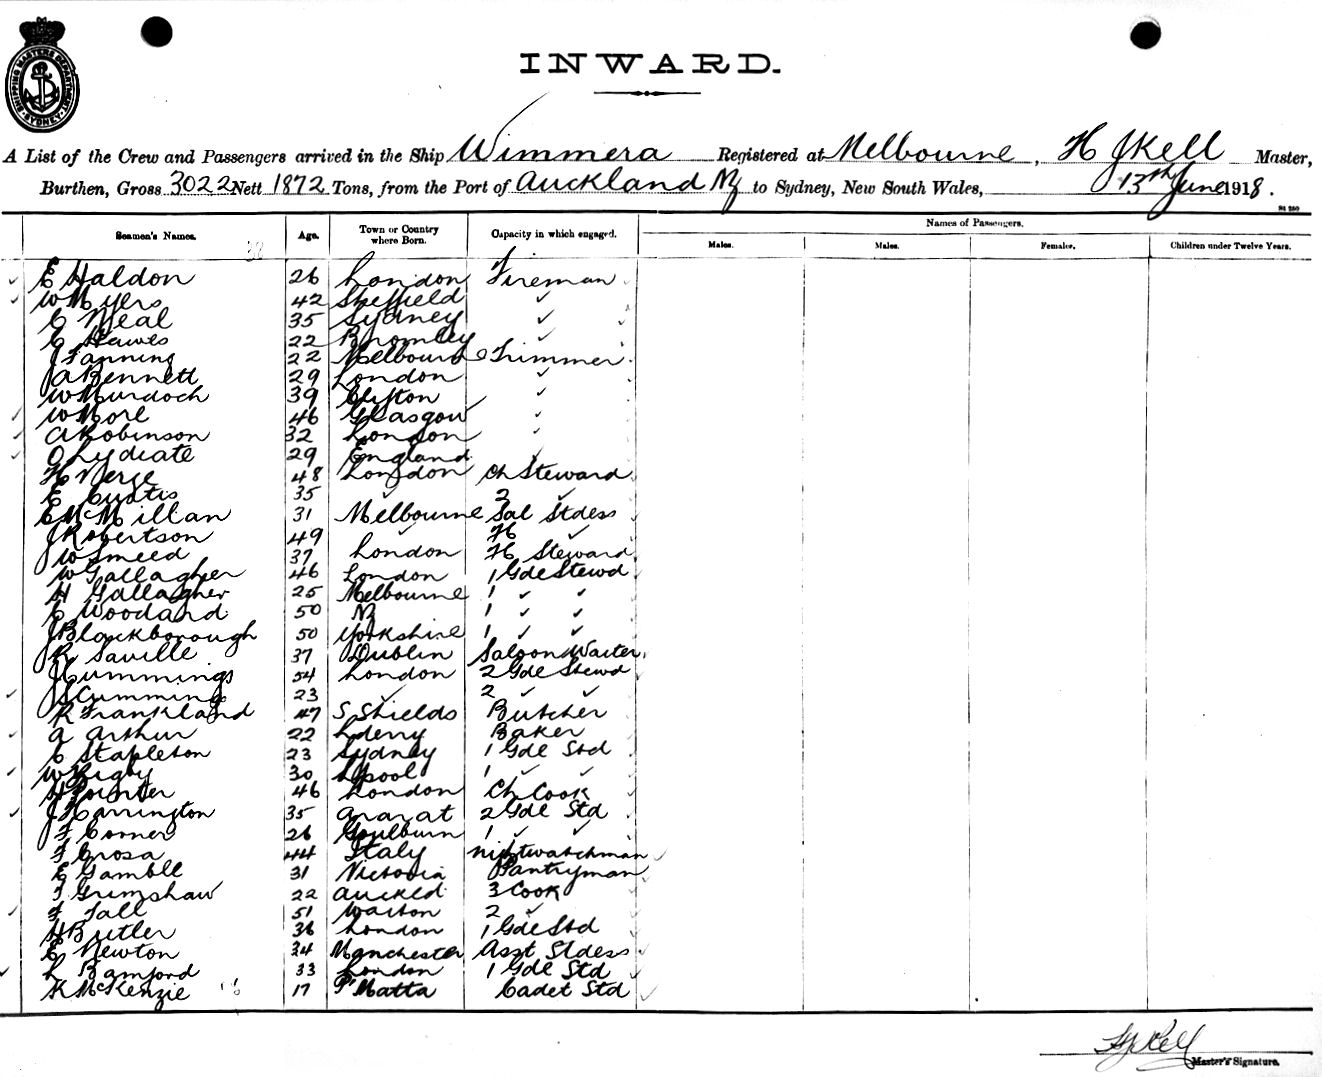 SHIPPING MASTERS DEPARTMENT SYDNEY
INWARD.
A List of the Crew and Passengers arrived in the Ship Wimmera Registered at Melbourne, H J Kell Master,
Burthen, Gross 3022 Nett 1872 Tons, from the Port of Auckland NZ to Sydney, New South Wales, 13th June 1918.
Seamen's Names. Age. Town or Country where Born. Capacity in which engaged. Names of Passengers.
Males. Males. Females. Children under Twelve Years.
E Haldon 26 London Fireman
W Myers 42 Sheffield ✓
C Neal 35 Sydney ✓
E Hawes 22 Bromley ✓
J Fanning 22 Melbourne Trimmer
J A Bennett 29 London ✓
W Murdoch 39 Clifton ✓
W More 46 Glasgow ✓
A Robinson 32 London ✓
O Lydiate 29 England ✓
H Nerge 48 London Ch Steward
E Curtis 35 ✓ 2 ✓
C McMillan 31 Melbourne Sal Stdess
J Robertson 49 ✓ H ✓
W Smeed 37 London H Steward
W Gallagher 46 London 1 Gde Stewd
H Gallagher 25 Melbourne 1 ✓ ✓
C Woodard 50 NZ 1 ✓ ✓
J Blackborough 50 Yorkshire 1 ✓ ✓
R Saville 37 Dublin Saloon Waiter
J Cummings 54 London 2 Gde Stewd
J S Cumming 23 ✓ 2 ✓ ✓
R Frankland 47 S Shields Butcher
A Arthur 22 L'derry Baker
C Stapleton 23 Sydney 1 Gde Std
W Rigby 30 L'pool 1 ✓ ✓
H Pointer 46 London Ch Cook
J Harrington 35 Ararat 2 Gde Std
F Corner 26 Goulburn 1 ✓ ✓
F Crosa 44 Italy nightwatchman
E Gamble 31 Victoria Pantryman
T Grimshaw 22 Auckld 3 Cook
F Tall 51 Walton 2 ✓
H Butler 36 London 1 Gde Std
E Newton 34 Manchester Asst Stdess
L Bamford 33 London 1 Gde Std
K McKenzie 17 P'Matta Cadet Std
H J Kell
Master's Signature.